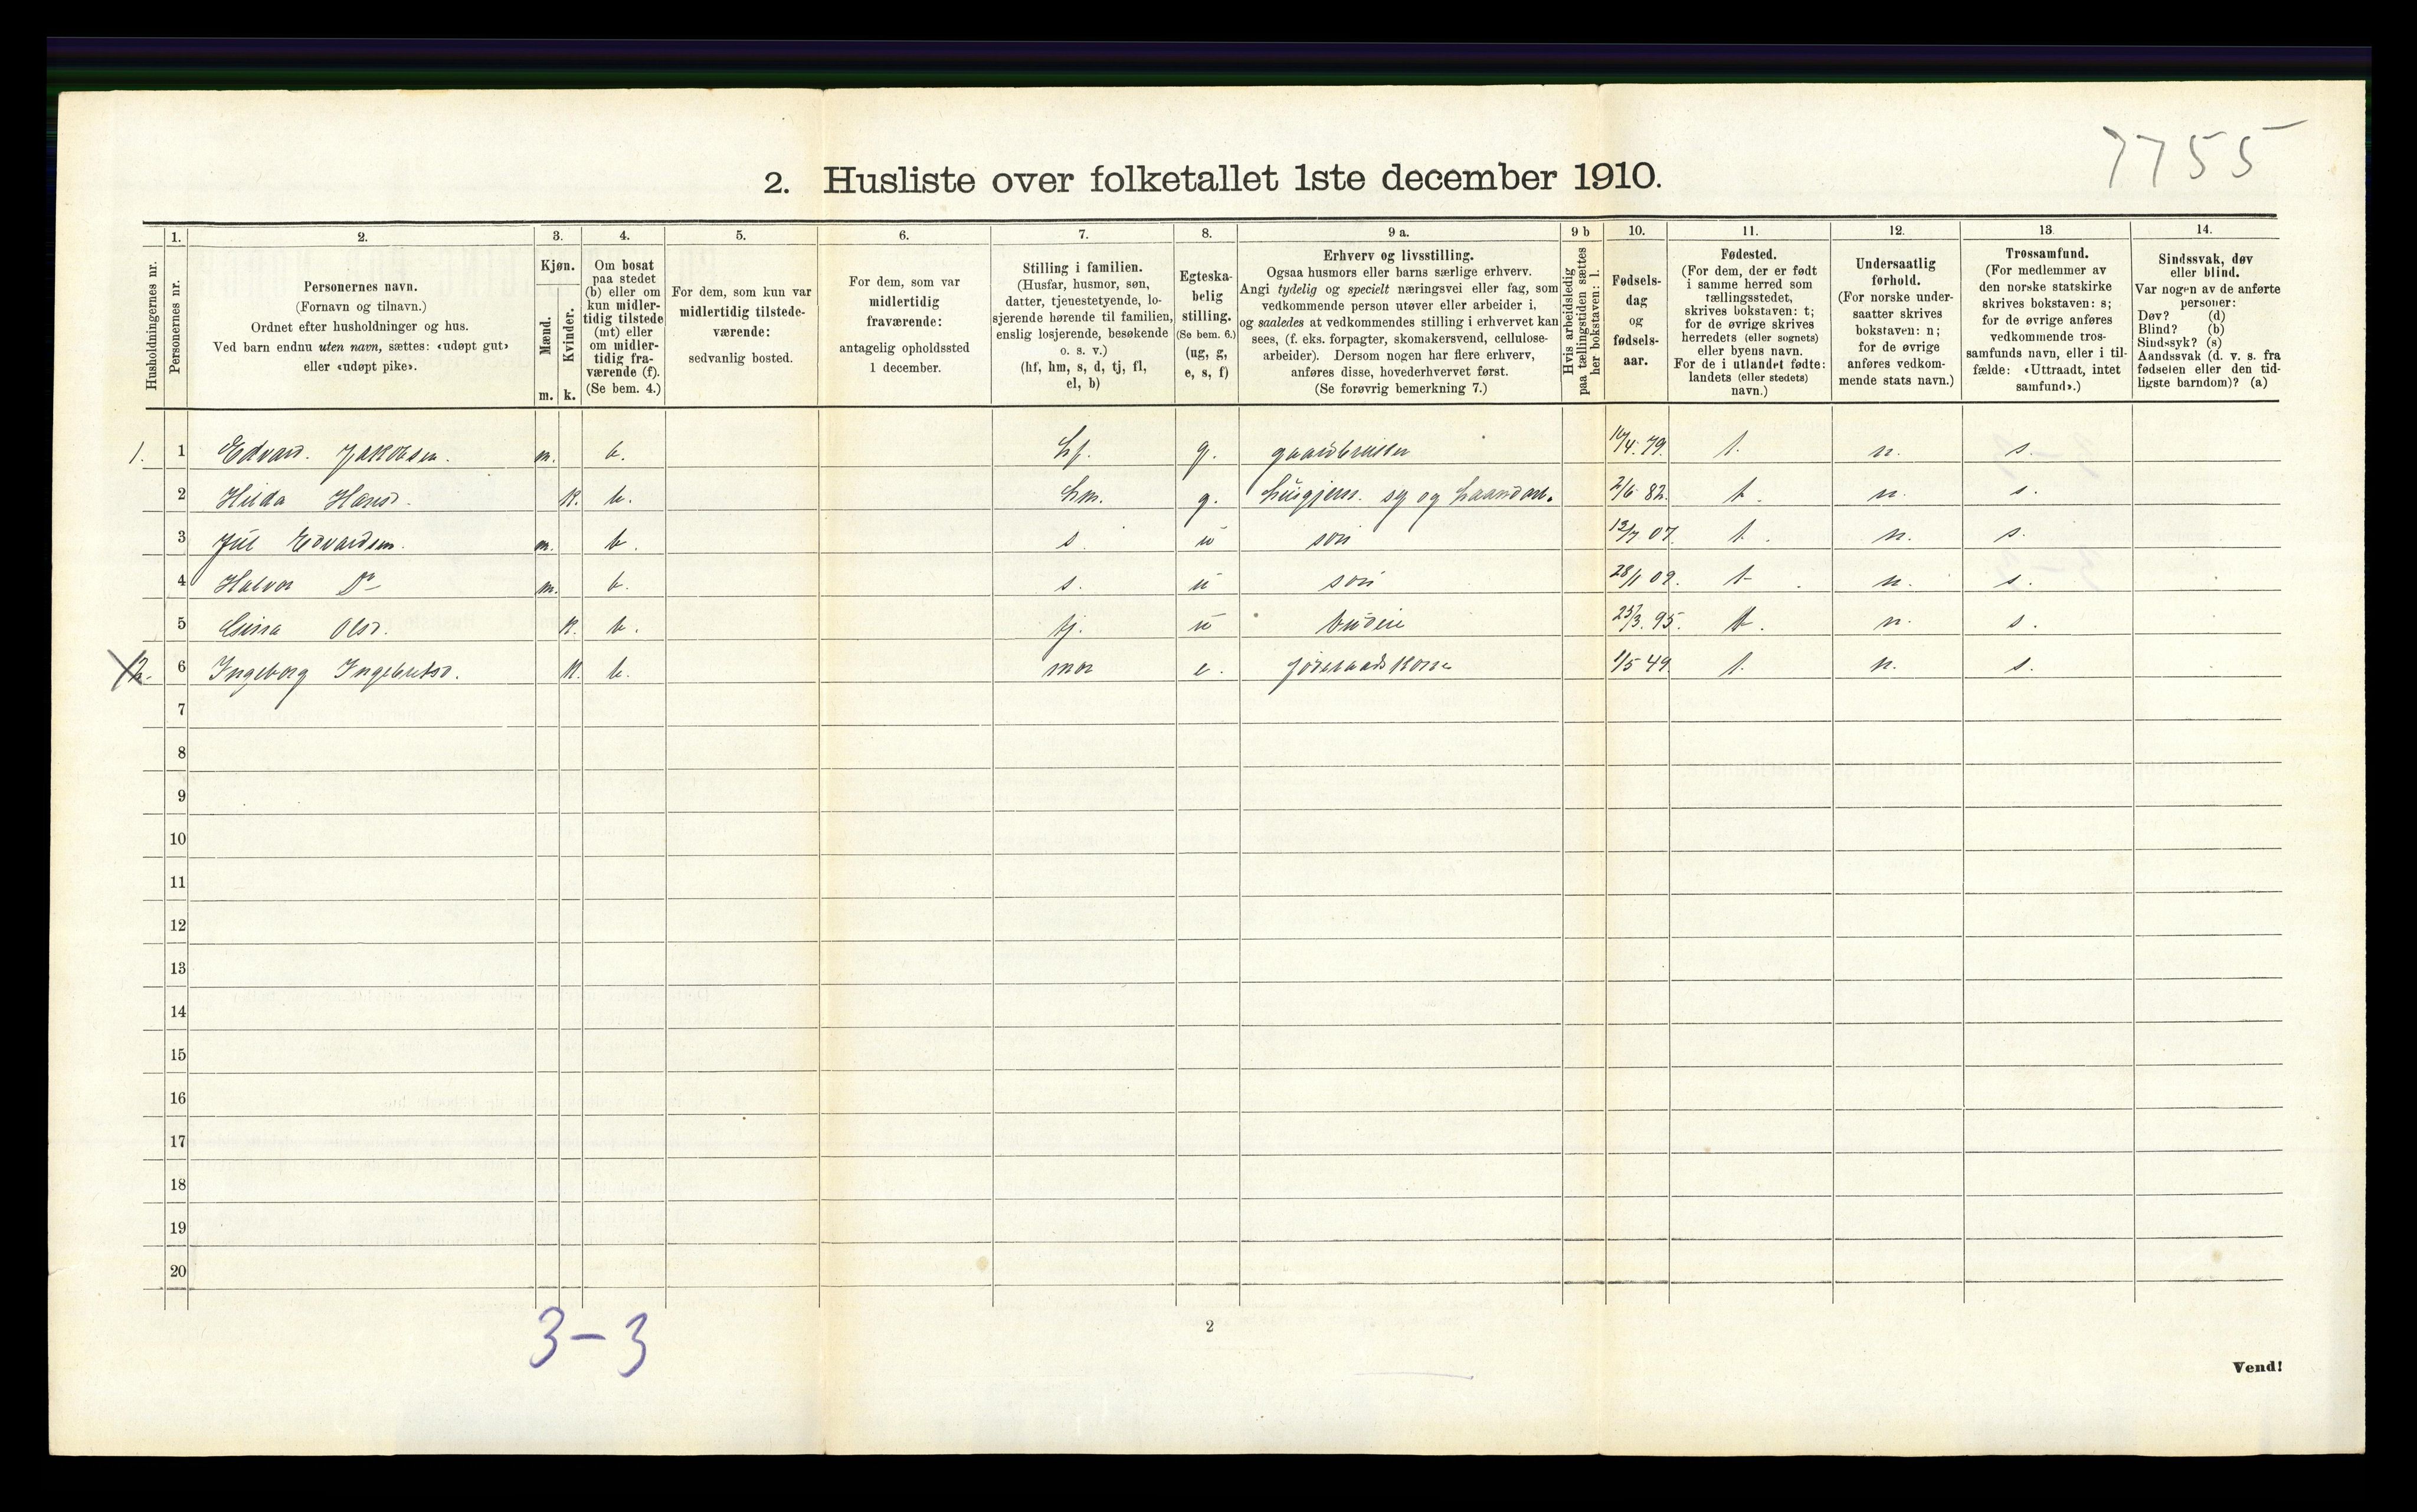 7755
2. Husliste over folketallet 1ste december 1910.
Husholdningernes nr.
1.
Personernes nr.
2.
Personernes navn.
(Fornavn og tilnavn.)
Ordnet efter husholdninger og hus.
Ved barn endnu uten navn, sættes: «udøpt gut»
eller «udøpt pike».
3.
Kjøn.
Mænd.
Kvinder.
m. k.
4.
Om bosat
paa stedet
(b) eller om
kun midler-
tidig tilstede
(mt) eller
om midler-
tidig fra-
værende (f).
(Se bem. 4.)
5.
For dem, som kun var
midlertidig tilstede-
værende:
sedvanlig bosted.
6.
For dem, som var
midlertidig
fraværende:
antagelig opholdssted
1 december.
7.
Stilling i familien.
(Husfar, husmor, søn,
datter, tjenestetyende, lo-
sjerende hørende til familien,
enslig losjerende, besøkende
o. s. v.)
(hf, hm, s, d, tj, fl,
el, b)
8.
Egteska-
belig
stilling.
(Se bem. 6.)
(ug, g,
e, s, f)
9 a.
Erhverv og livsstilling.
Ogsaa husmors eller barns særlige erhverv.
Angi tydelig og specielt næringsvei eller fag, som
vedkommende person utøver eller arbeider i,
og saaledes at vedkommendes stilling i erhvervet kan
sees, (f. eks. forpagter, skomakersvend, cellulose-
arbeider). Dersom nogen har flere erhverv,
anføres disse, hovederhvervet først.
(Se forøvrig bemerkning 7.)
9 b
Hvis arbeidsledig
paa tællingstiden sættes
her bokstaven: l.
10.
Fødsels-
dag
og
fødsels-
aar.
11.
Fødested.
(For dem, der er født
i samme herred som
tællingsstedet,
skrives bokstaven: t;
for de øvrige skrives
herredets (eller sognets)
eller byens navn.
For de i utlandet fødte:
landets (eller stedets)
navn.)
12.
Undersaatlig
forhold.
(For norske under-
saatter skrives
bokstaven: n;
for de øvrige
anføres vedkom-
mende stats navn.)
13.
Trossamfund.
(For medlemmer av
den norske statskirke
skrives bokstaven: s;
for de øvrige anføres
vedkommende tros-
samfunds navn, eller i til-
fælde: «Uttraadt, intet
samfund».)
14.
Sindssvak, døv
eller blind.
Var nogen av de anførte
personer:
Døv? (d)
Blind? (b)
Sindssyk? (s)
Aandssvak (d. v. s. fra
fødselen eller den tid-
ligste barndom)? (a)
1. 1 Edvard. Jakobsen. m. b. hf. g. gaardbruker 10/4.79. t. n. s.
2 Hilda Hansd. k. b. hm. g. husgjern. sy og haandarb. 2/6 82. t. n. s.
3 Jul Edvardsen. m. b. s. u søn 12/7 07. t. n. s.
4 Halvor Do m. b. s. u søn 28/1 09. t n. s.
5 Olsd. k. b. tj. u budeie 25/3.95. t. n. s.
2. 6 Ingeborg Ingebretsd. k. b. mor e. føderaadskone 1/5 49. t. n. s.
7
8
9
10
11
12
13
14
15
16
17
18
19
20
3-3
2
Vend!